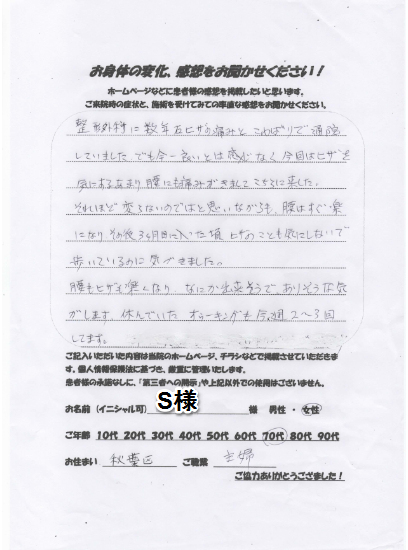 お身体の変化、感想をお聞かせください！
ホームページなどに患者様の感想を掲載したいと思います。
ご来院時の症状と、施術を受けてみての率直な感想をお聞かせください。
整形外科に数年左ヒザの痛みと、こわばりで通院
していました。でも今一良いとは感じなく、今回はヒザを
気にするあまり腰にも痛みがきましてこちらに来ました。
それほど変らないのではと思いながらも、腰はすぐ楽
になり その後3ヶ月目に入った頃 ヒザのことも気にしないで
歩いているのに気づきました。
腰もヒザも楽になり、なにか出来そうで、ありそうな気
がします。休んでいた ウォーキングも今週2〜3回
してます。
ご記入いただいた内容は当院のホームページ、チラシなどで掲載させていただきま
す。個人情報保護法に基づき、厳重に管理いたします。
患者様の承諾なしに、「第三者への開示」や上記以外での使用はございません。
お名前（イニシャル可） S様 様 男性・女性
ご年齢 10代 20代 30代 40代 50代 60代 70代 80代 90代
お住まい 秋葉区 ご職業 主婦
ご協力ありがとうござました！